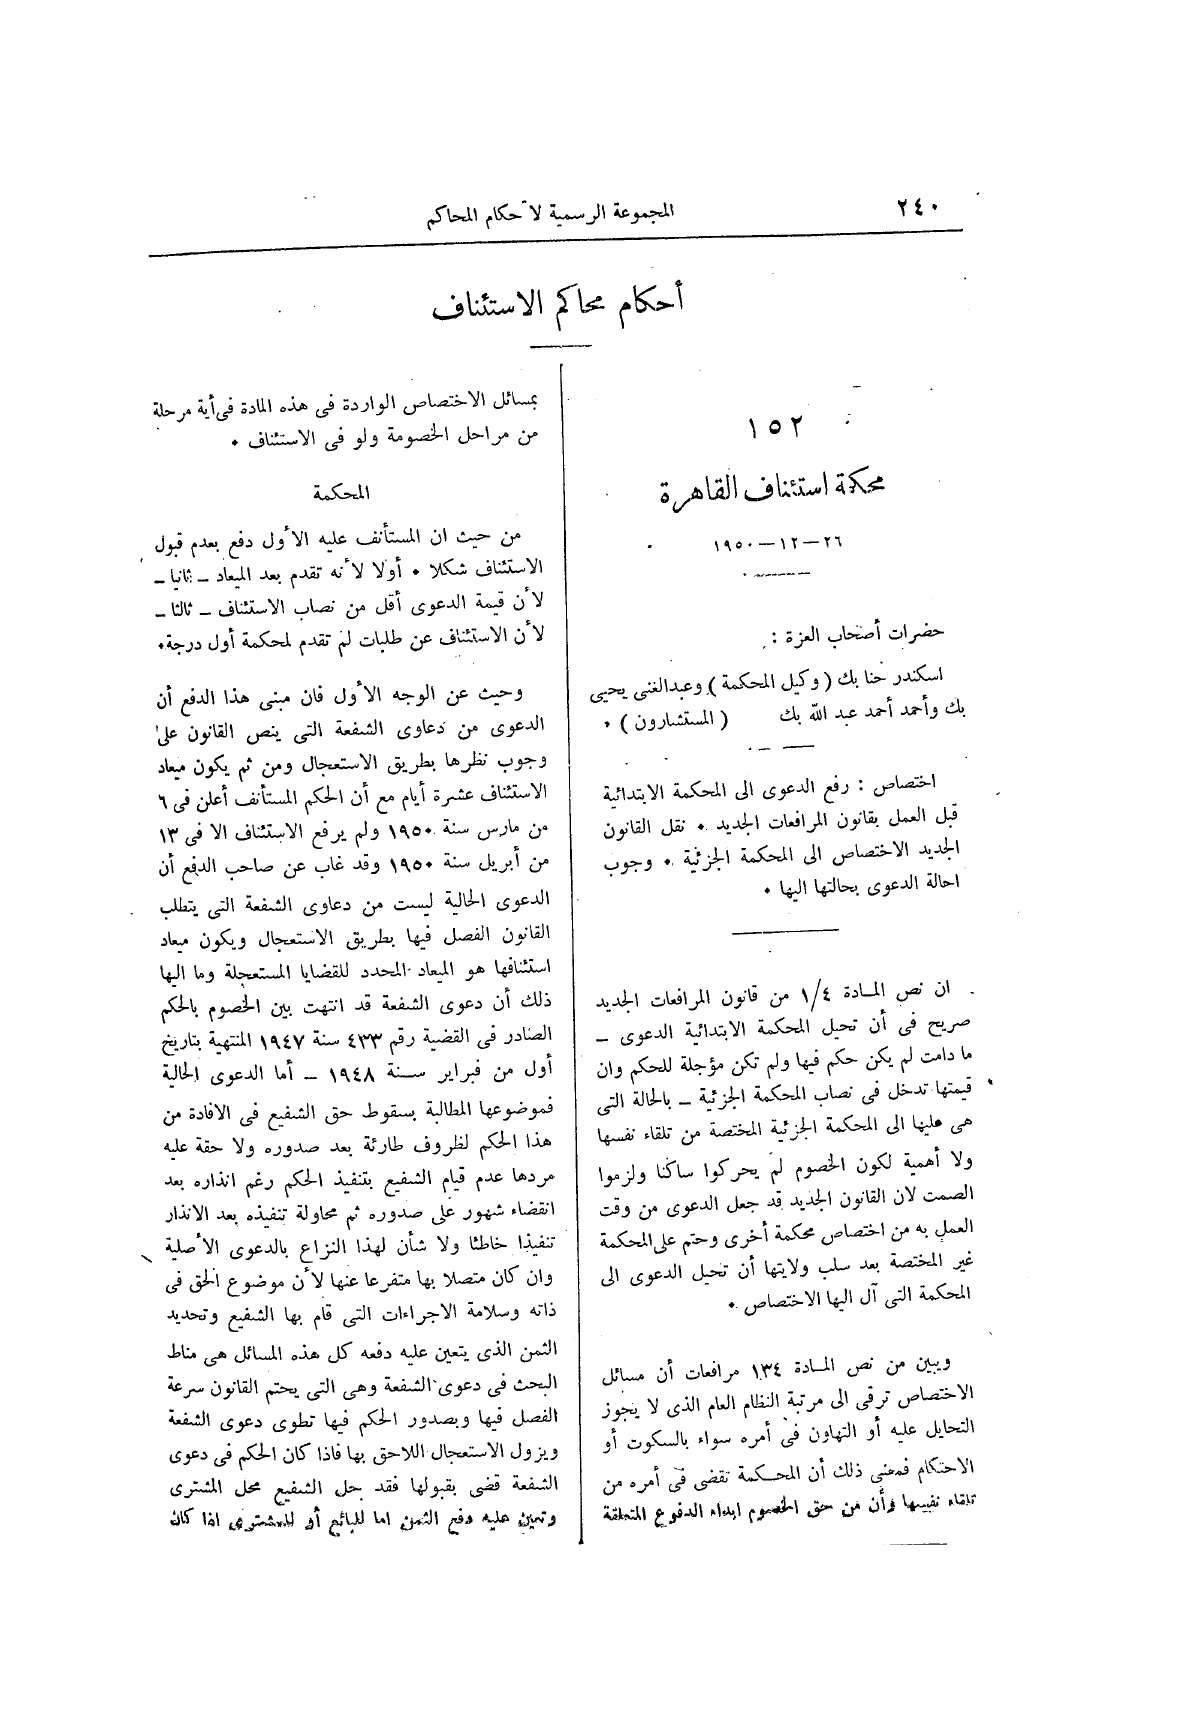 ٢٤٠
المجموعة الرسمية لأحكام المحاكم
أحكام محاكم الاستئناف
١٥٢
محكمة استئناف القاهرة
٢٦—١٢—١٩٥٠
حضرات أصحاب العزة :
اسكندر حنا بك ( وكيل المحكمة ) وعبدالغنى يحيى
بك وأحمد أحمد عبد الله بك ( المستشارون ) •
اختصاص : رفع الدعوى الى المحكمة الابتدائية
قبل العمل بقانون المرافعات الجديد • نقل القانون
الجديد الاختصاص الى المحكمة الجزئية • وجوب
احالة الدعوى بحالتها اليها •
ان نص المادة ١/٤ من قانون المرافعات الجديد
صريح فى أن تحيل المحكمة الابتدائية الدعوى —
ما دامت لم يكن حكم فيها ولم تكن مؤجلة للحكم وان
قيمتها تدخل فى نصاب المحكمة الجزئية — بالحالة التى
هى عليها الى المحكمة الجزئية المختصة من تلقاء نفسها
ولا أهمية لكون الخصوم لم يحركوا ساكنا ولزموا
الصمت لان القانون الجديد قد جعل الدعوى من وقت
العمل به من اختصاص محكمة أخرى وحتم على المحكمة
غير المختصة بعد سلب ولايتها أن تحيل الدعوى الى
المحكمة التى آل اليها الاختصاص •
ويبين من نص المادة ١٣٤ مرافعات أن مسائل
الاختصاص ترقى الى مرتبة النظام العام الذى لا يجوز
التحايل عليه أو التهاون فى أمره سواء بالسكوت أو
الاحتكام فمعنى ذلك أن المحكمة تقضى فى أمره من
تلقاء نفسها وأن من حق الخصوم ابداء الدفوع المتعلقة
بمسائل الاختصاص الواردة فى هذه المادة فى أية مرحلة
من مراحل الخصومة ولو فى الاستئناف •
المحكمة
من حيث ان المستأنف عليه الأول دفع بعدم قبول
الاستئناف شكلا • أولا لأنه تقدم بعد الميعاد — ثانيا —
لأن قيمة الدعوى أقل من نصاب الاستئناف — ثالثا —
لأن الاستئناف عن طلبات لم تقدم لمحكمة أول درجة•
وحيث عن الوجه الأول فان مبنى هذا الدفع أن
الدعوى من دعاوى الشفعة التى ينص القانون على
وجوب نظرها بطريق الاستعجال ومن ثم يكون ميعاد
الاستئناف عشرة أيام مع أن الحكم المستأنف أعلن فى ٦
من مارس سنة ١٩٥٠ ولم يرفع الاستئناف الا فى ١٣
من أبريل سنة ١٩٥٠ وقد غاب عن صاحب الدفع أن
الدعوى الحالية ليست من دعاوى الشفعة التى يتطلب
القانون الفصل فيها بطريق الاستعجال ويكون ميعاد
استئنافها هو الميعاد المحدد للقضايا المستعجلة وما اليها
ذلك أن دعوى الشفعة قد انتهت بين الخصوم بالحكم
الصادر فى القضية رقم ٤٣٣ سنة ١٩٤٧ المنتهية بتاريخ
أول من فبراير سنة ١٩٤٨ — أما الدعوى الحالية
فموضوعها المطالبة بسقوط حق الشفيع فى الافادة من
هذا الحكم لظروف طارئة بعد صدوره ولا حقة عليه
مردها عدم قيام الشفيع بتنفيذ الحكم رغم انذاره بعد
انقضاء شهور على صدوره ثم محاولة تنفيذه بعد الانذار
تنفيذا خاطئا ولا شأن لهذا النزاع بالدعوى الأصلية
وان كان متصلا بها متفرعا عنها لأن موضوع الحق فى
ذاته وسلامة الاجراءات التى قام بها الشفيع وتحديد
الثمن الذى يتعين عليه دفعه كل هذه المسائل هى مناط
البحث فى دعوى الشفعة وهى التى يحتم القانون سرعة
الفصل فيها وبصدور الحكم فيها تطوى دعوى الشفعة
ويزول الاستعجال اللاحق بها فاذا كان الحكم فى دعوى
الشفعة قضى بقبولها فقد حل الشفيع محل المشترى
وتعين عليه دفع الثمن اما للبائع أو للمشترى اذا كان